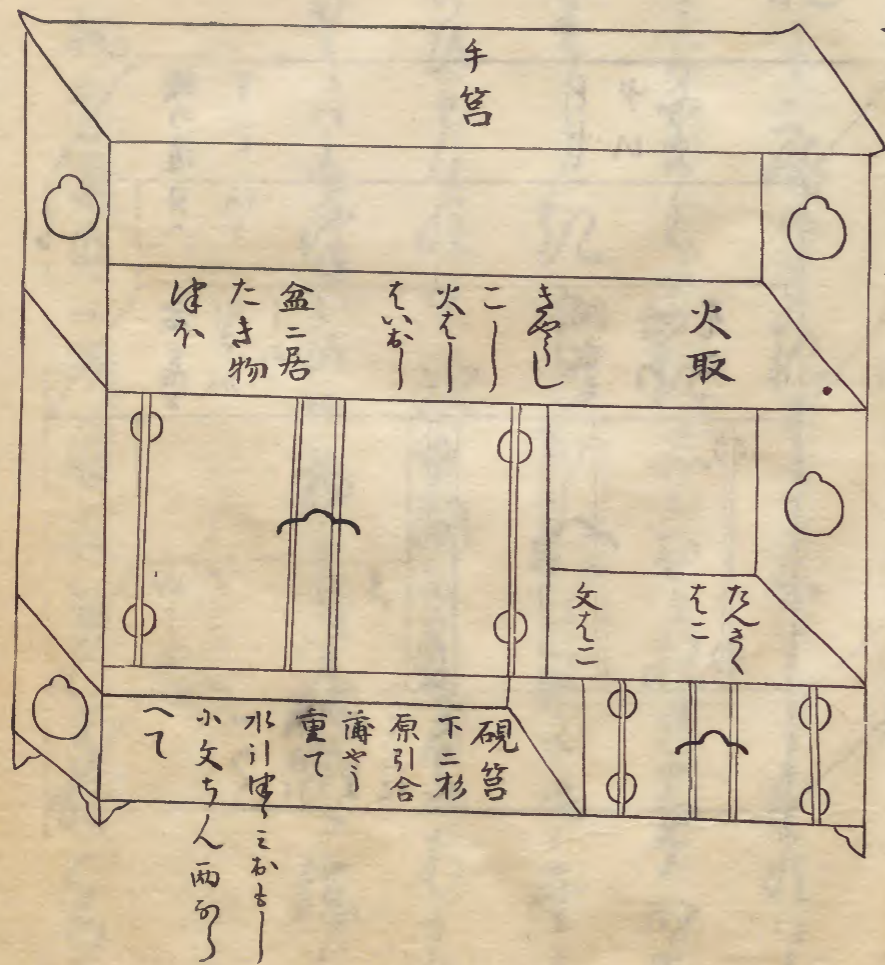 手筥
火取
きやうし
こし
火はし
はいおし
盆ニ居
たき物
つほ
たんさく
はこ
文はこ
硯筥
下ニ杉
原引合
薄やう
重て
水引つゝミおもし
小文ちん両なら
へて